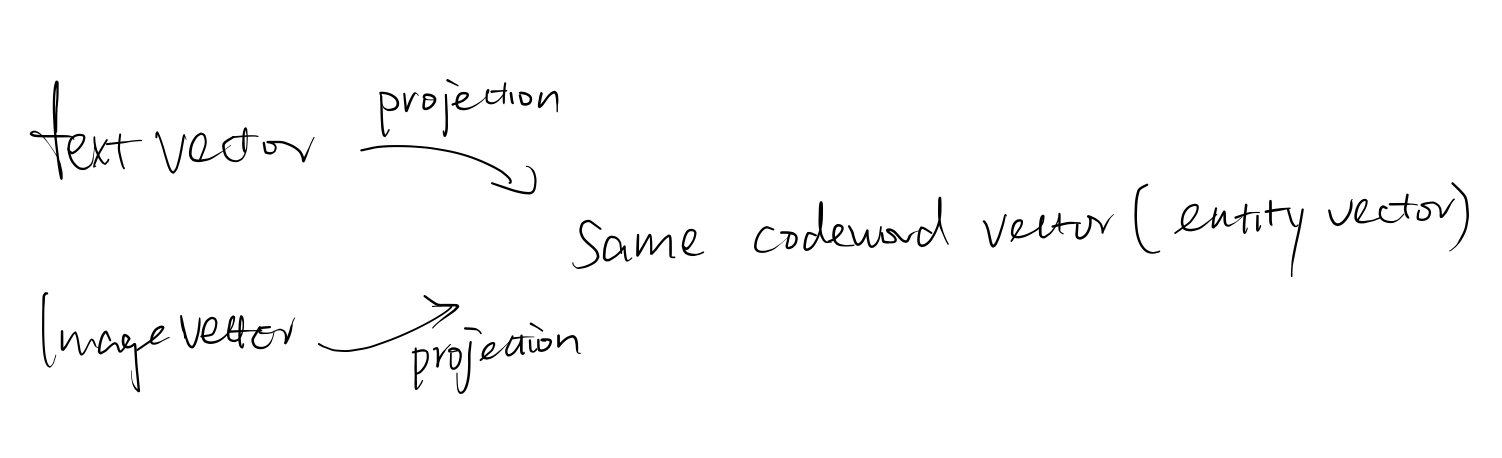 projection
text vector
Same codeword vector (entity vector)
Image vector
projection